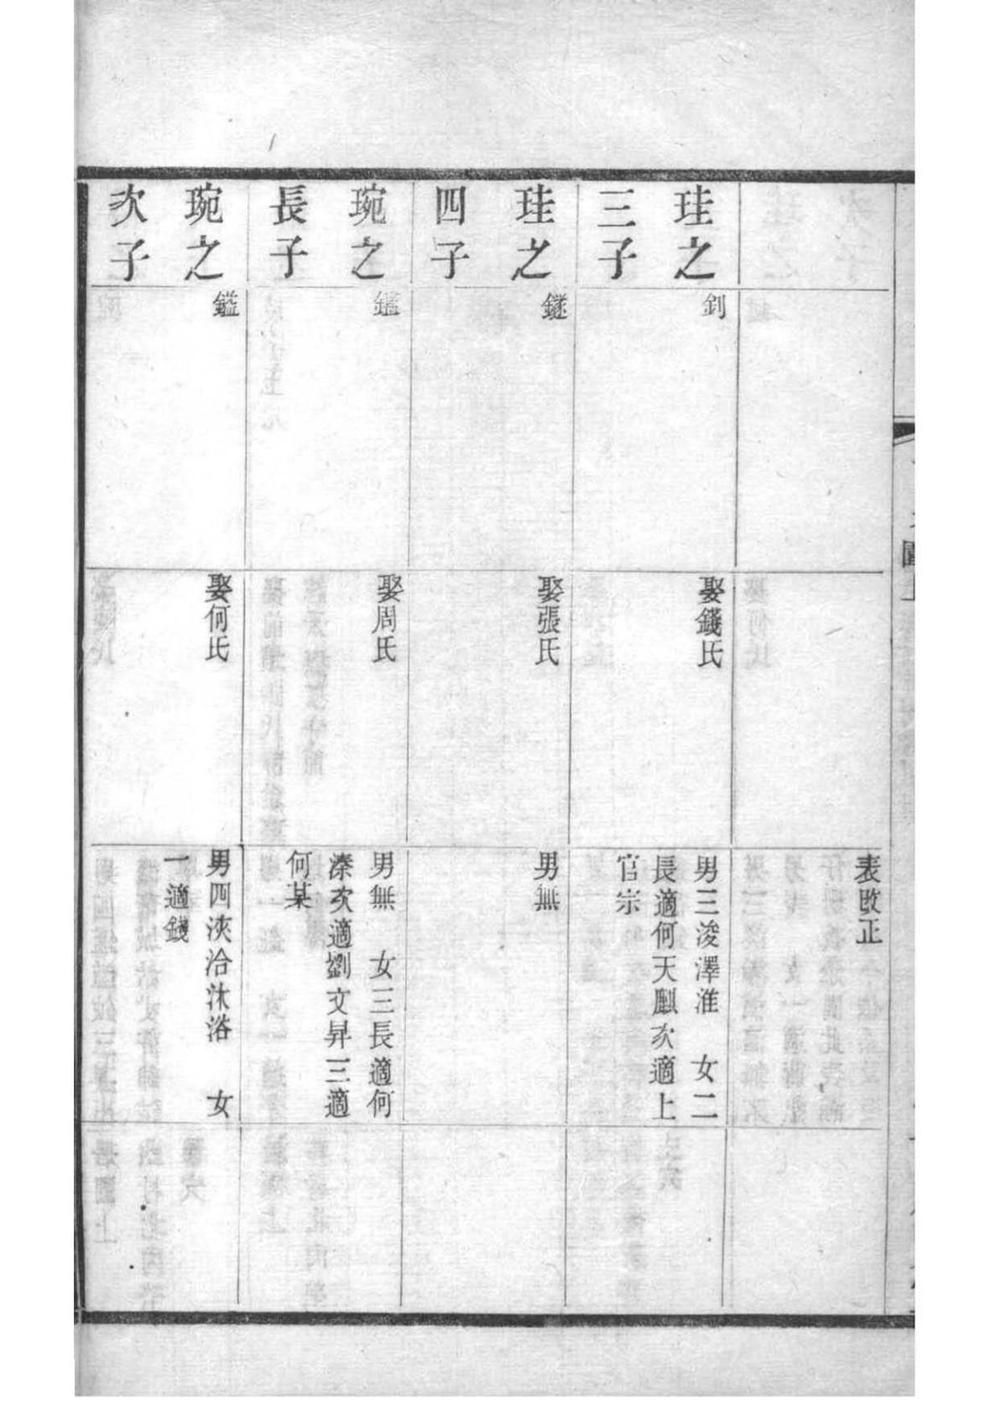 表改正
珪之
三子
釗
娶錢氏
男三浚澤淮　女二
長適何天麒次適上
官宗
珪之
四子
鐩
娶張氏
男無
琬之
長子
鑑
娶周氏
男無　女三長適何
濚次適劉文昇三適
何某
琬之
次子
鎰
娶何氏
男四浹洽沐浴　女
一適錢